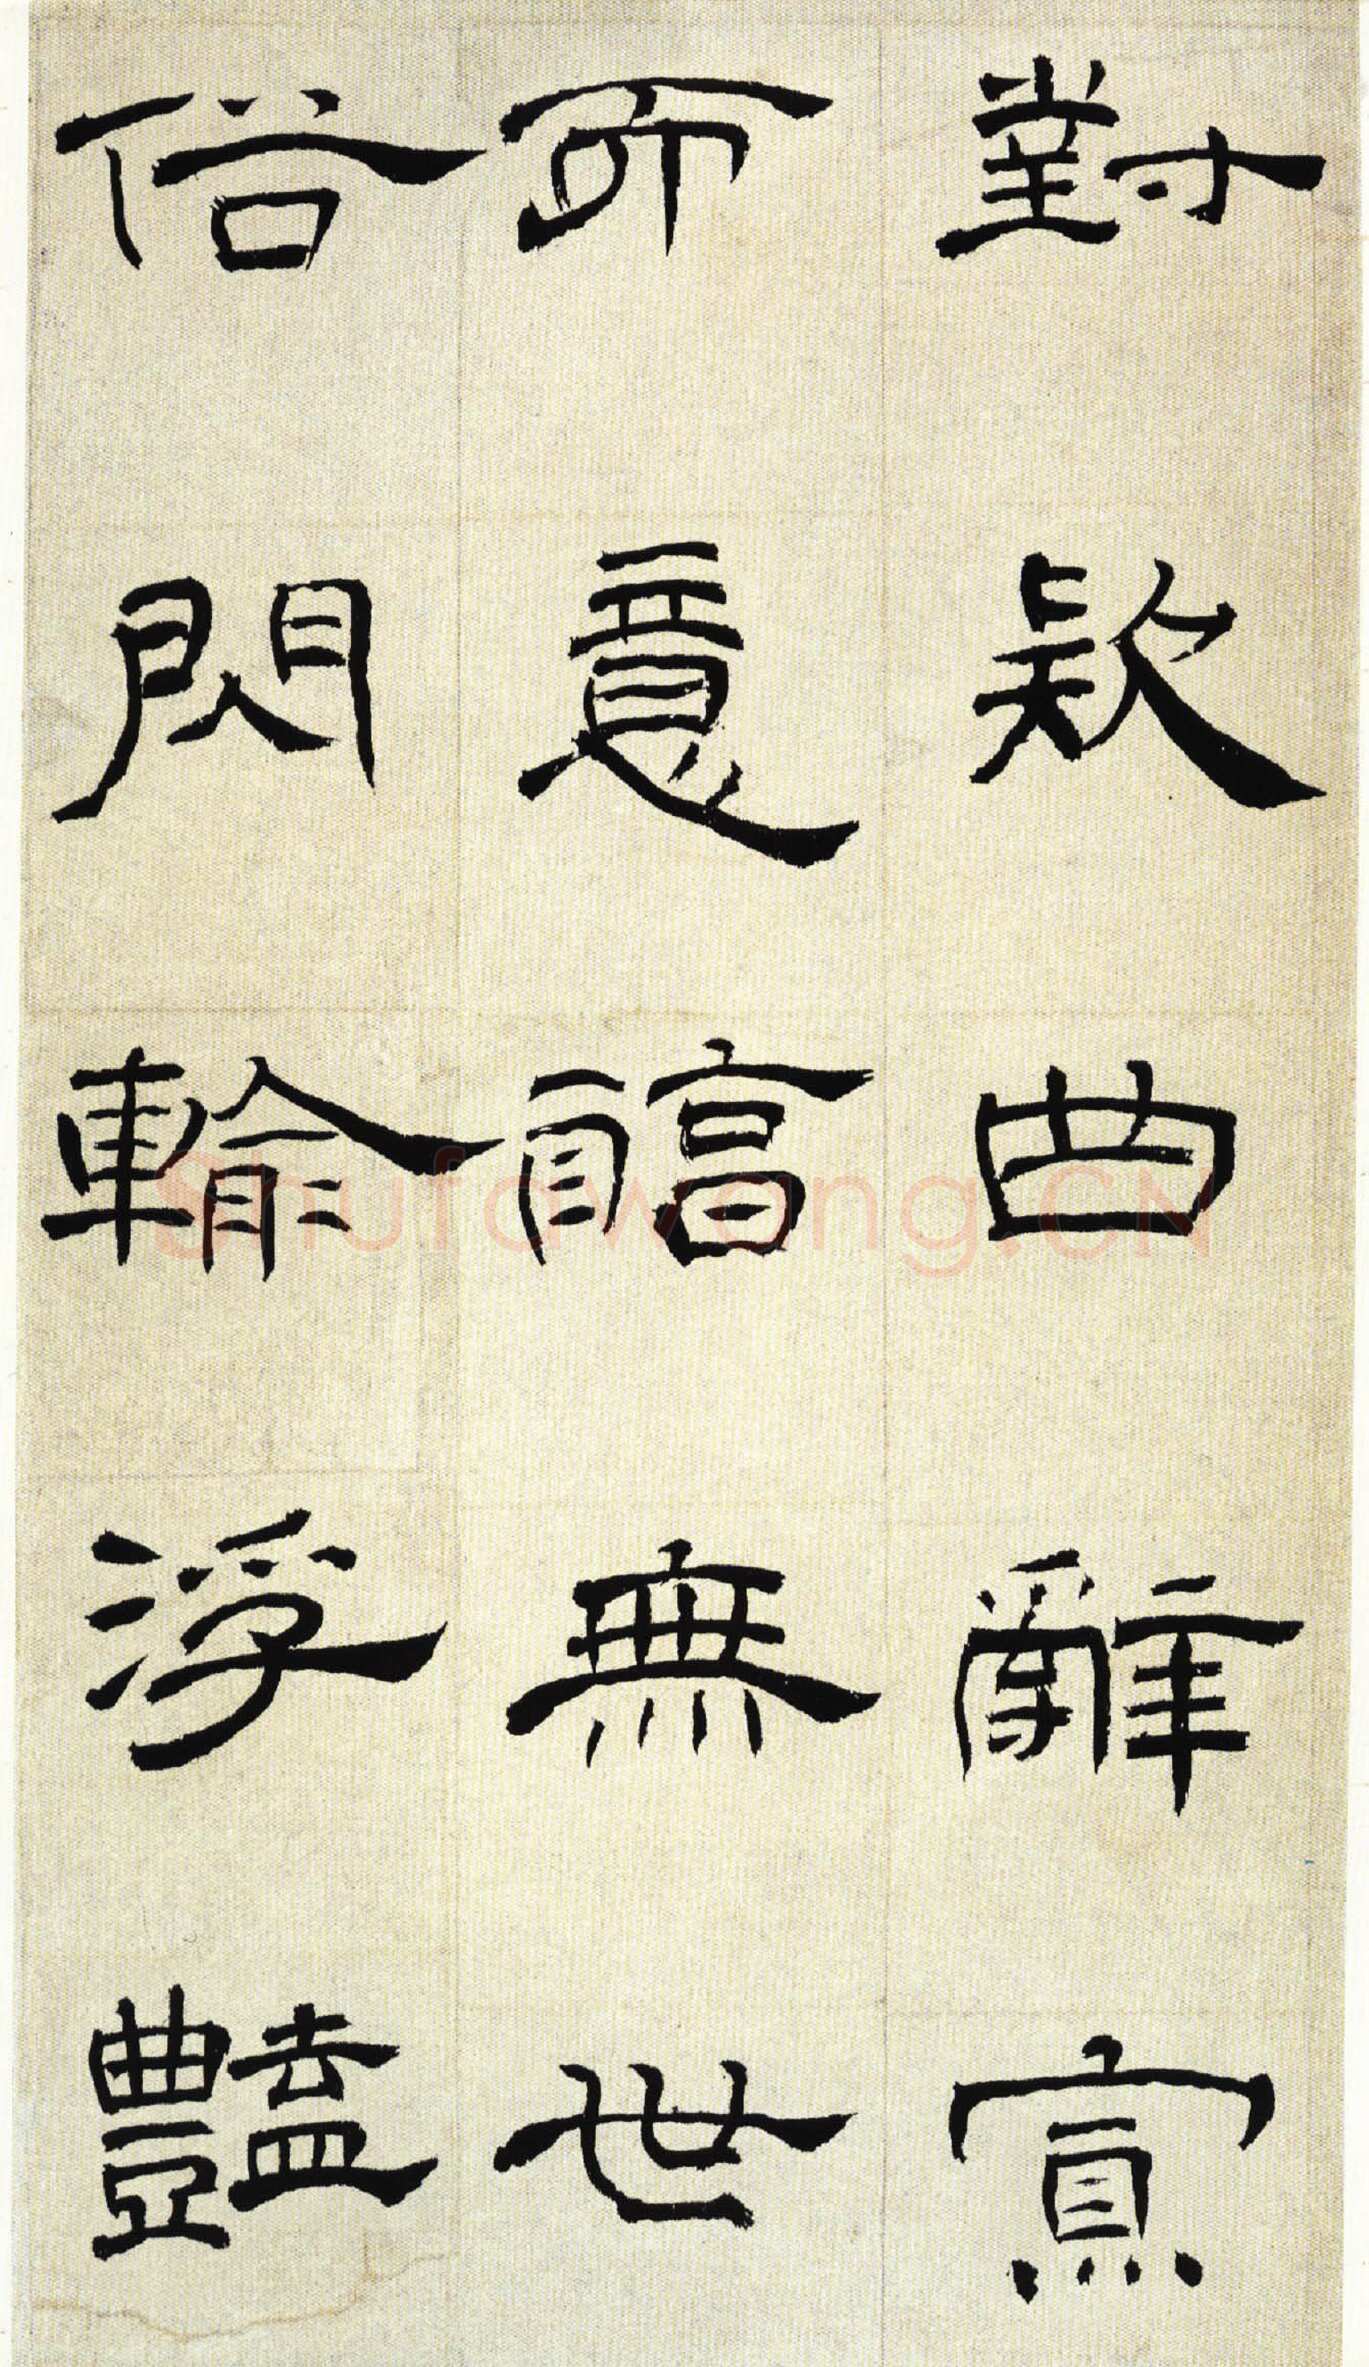 對欵曲辭寡
而意醇無世
俗閃輸浮豔
Shufawang.CN